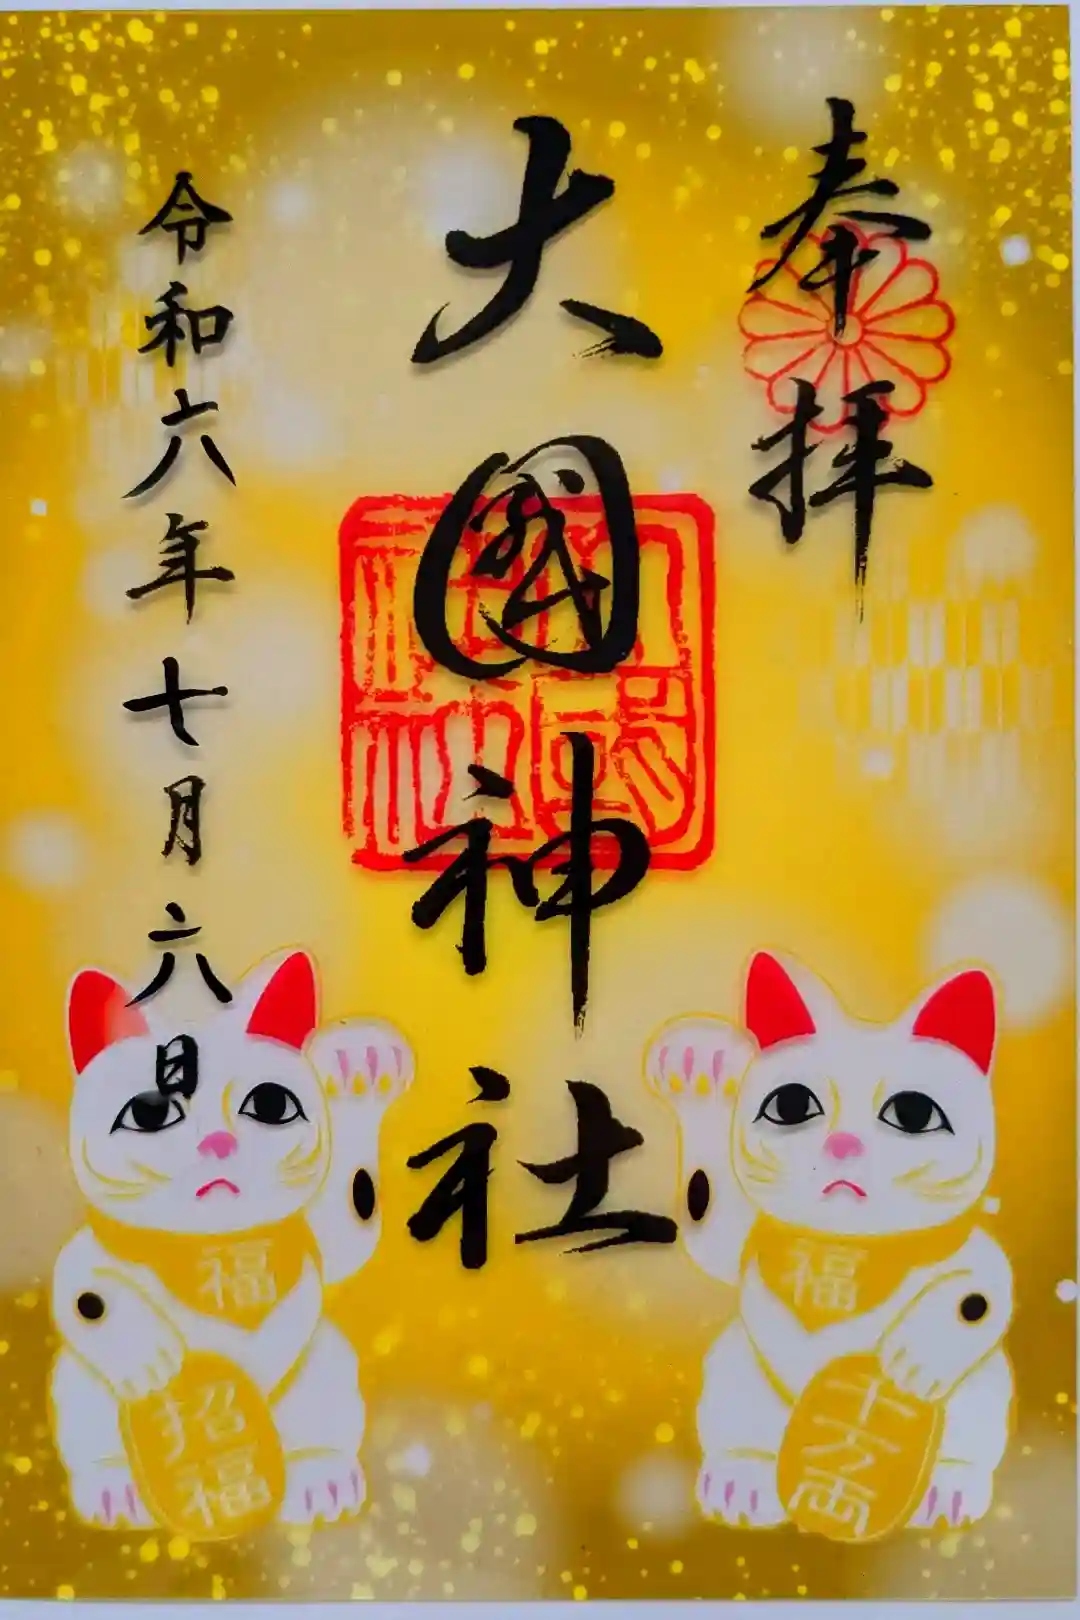 奉拝
大國神社
令和六年七月六日
福
千万両
福
招福